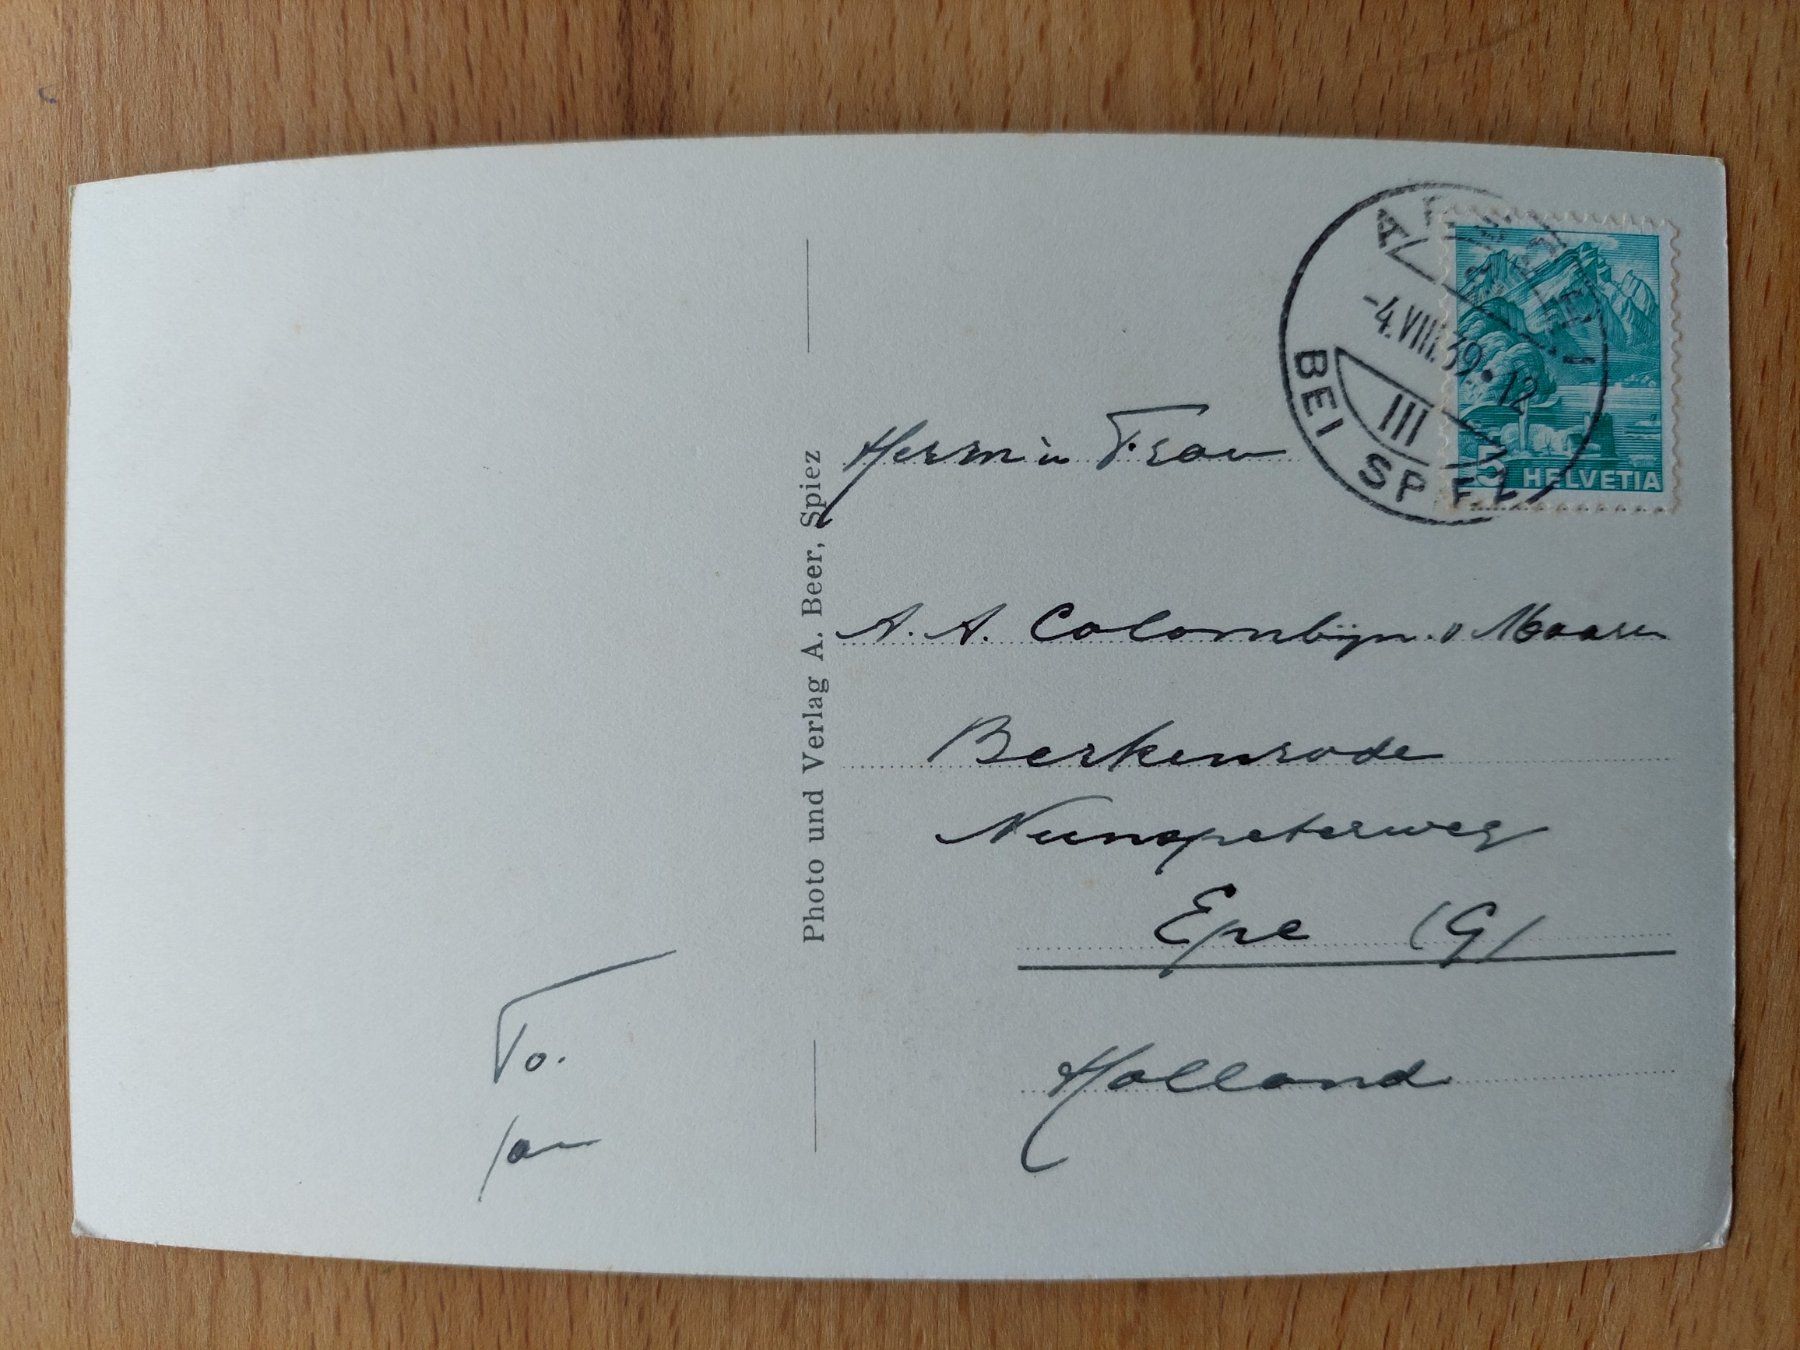 Herrn u Frau
A. A. Colombijn. v Maaren
Berkenrode
Nunspeterweg
Epe (G)
Holland
To.
Jan
Photo und Verlag A. Beer, Spiez
-4.VIII.39.12
III
BEI SPIEZ
5 HELVETIA